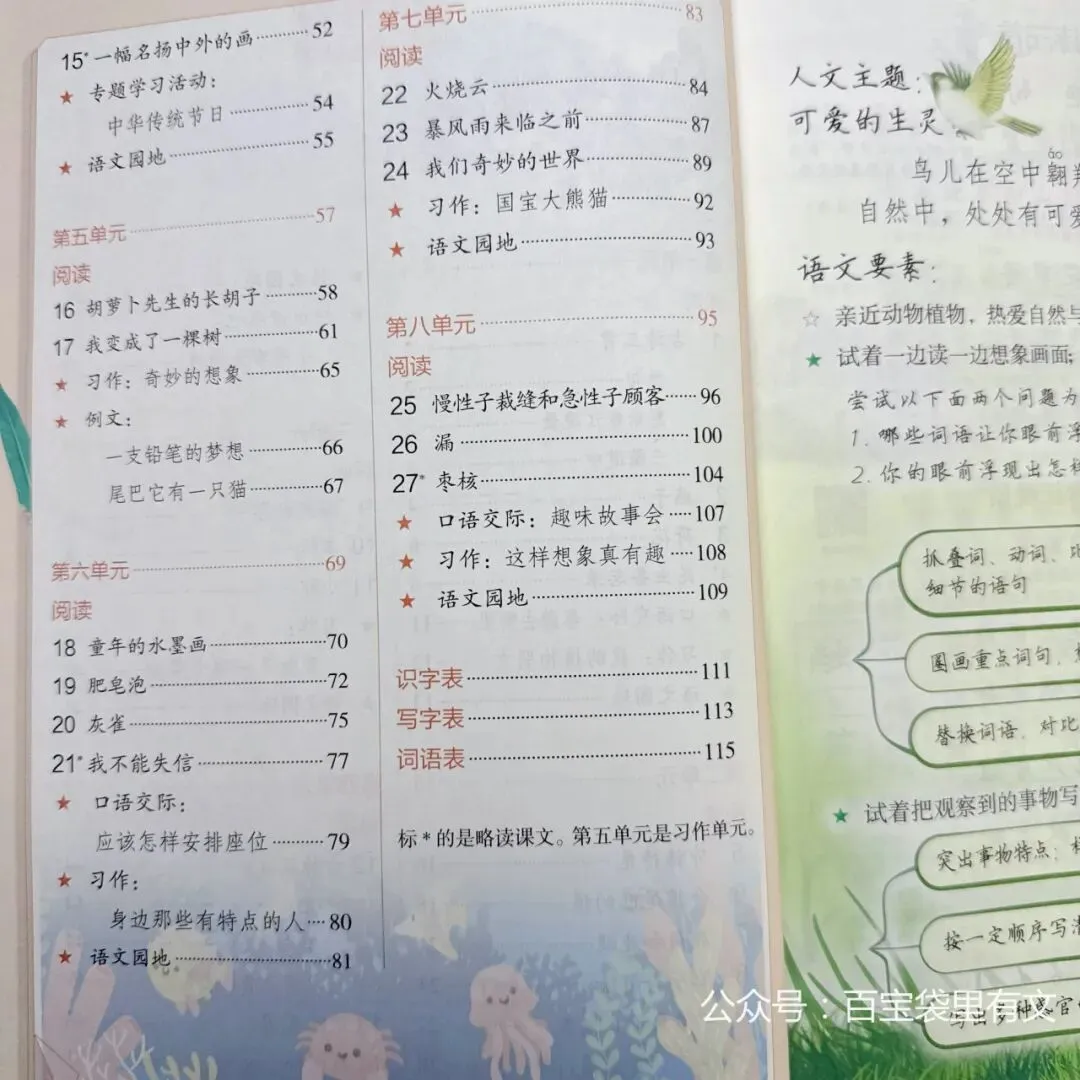 15*一幅名扬中外的画…………52
★ 专题学习活动：
中华传统节日…………54
★ 语文园地…………55
第五单元…………57
阅读
16 胡萝卜先生的长胡子…………58
17 我变成了一棵树…………61
★ 习作：奇妙的想象…………65
★ 例文：
一支铅笔的梦想…………66
尾巴它有一只猫…………67
第六单元…………69
阅读
18 童年的水墨画…………70
19 肥皂泡…………72
20 灰雀…………75
21*我不能失信…………77
★ 口语交际：
应该怎样安排座位…………79
★ 习作：
身边那些有特点的人…80
★ 语文园地…………81
第七单元…………83
阅读
22 火烧云…………84
23 暴风雨来临之前…………87
24 我们奇妙的世界…………89
★ 习作：国宝大熊猫…………92
★ 语文园地…………93
第八单元…………95
阅读
25 慢性子裁缝和急性子顾客……96
26 漏…………100
27*枣核…………104
★ 口语交际：趣味故事会……107
★ 习作：这样想象真有趣……108
★ 语文园地…………109
识字表…………111
写字表…………113
词语表…………115
标*的是略读课文。第五单元是习作单元。
人文主题：
可爱的生灵
áo
鸟儿在空中翱
自然中，处处有可爱
语文要素：
☆ 亲近动物植物，热爱自然与
★ 试着一边读一边想象画面；
尝试以下面两个问题为
1. 哪些词语让你眼前浮
2. 你的眼前浮现出怎样
抓叠词、动词、比
细节的语句
圈画重点词句，想
替换词语，对比
★ 试着把观察到的事物写
突出事物特点：
按一定顺序写清
写出多种感官
公众号：百宝袋里有文